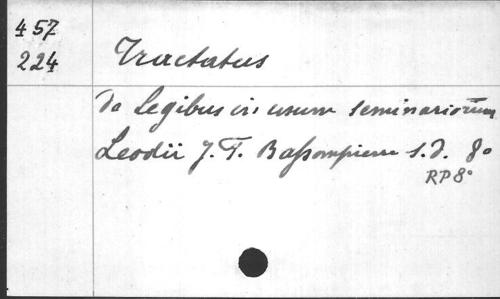 457
224
Tractatus
de legibus in usum seminariorum
Leodii J. F. Bassompierre s.d. 8o
RP8°